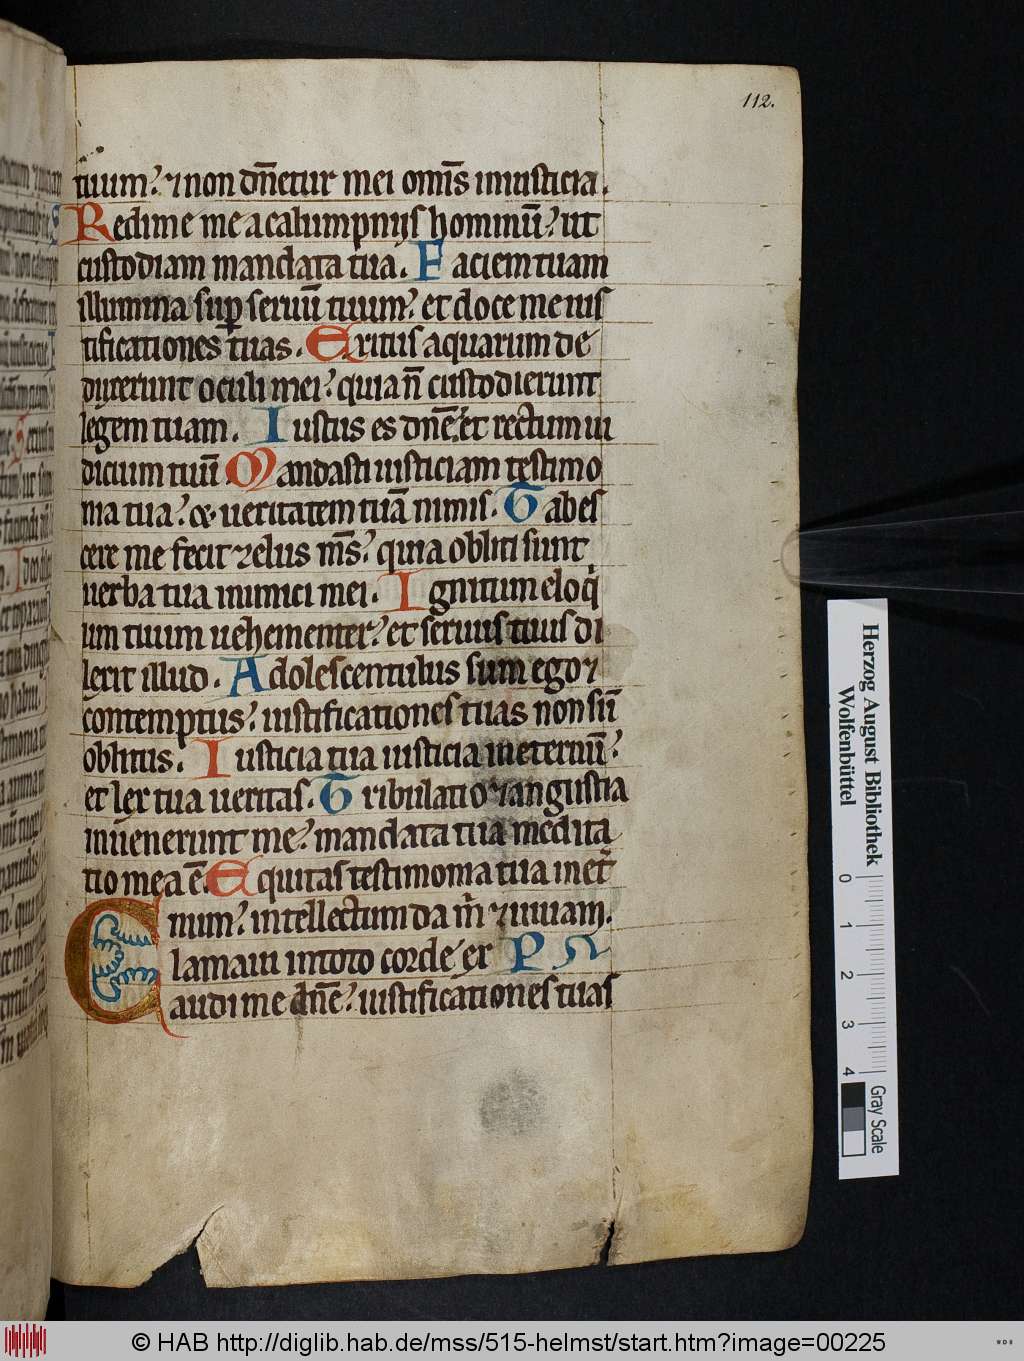 112.
tuum? ⁊ non dn̄etur mei om̄s iniusticia.
Redime me a calumpniis hominū? ut
custodiam mandata tua. Faciem tuam
illumina sup seruū tuum? et doce me ius
tificationes tuas. Exitus aquarum de
duxerunt oculi mei? quia n̄ custodierunt
legem tuam. Iustus es dn̄e? et rectum iu
dicium tuū Mandasti iusticiam testimo
nia tua? & ueritatem tuā nimis. Tabes
cere me fecit zelus m̄s? quia obliti sunt
uerba tua inimici mei. Ignitum eloq
ium tuum uehementer? et seruus tuus di
lexit illud. Adolescentulus sum ego ⁊
contemptus? iustificationes tuas non sū
oblitus. Iusticia tua iusticia in eternū?
et lex tua ueritas. Tribulatio ⁊ angustia
inuenerunt me? mandata tua medita
tio mea ē. Equitas testimonia tua in et
num? intellectum da m ⁊ uiuam.
Clamaui in toto corde ex PS
audi me dn̄e? iustificationes tuas
Herzog August Bibliothek
Wolfenbüttel
0 1 2 3 4
Gray Scale
© HAB http://diglib.hab.de/mss/515-helmst/start.htm?image=00225